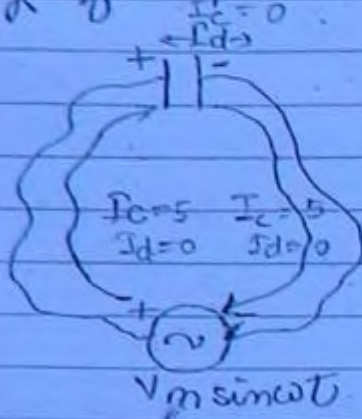 I'c = 0
Id
+ -
Ic=5 Ic=5
Id=0 Id=0
+
~
Vm sin ωt